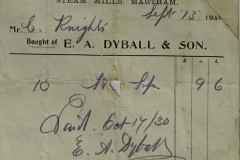 STEAM MILLS, MARTHAM.
Sept 13 19
Mr. C. Knights
Bought of E. A. DYBALL & SON.
10 9 6
Paid Oct 17/30
E. A. Dyball